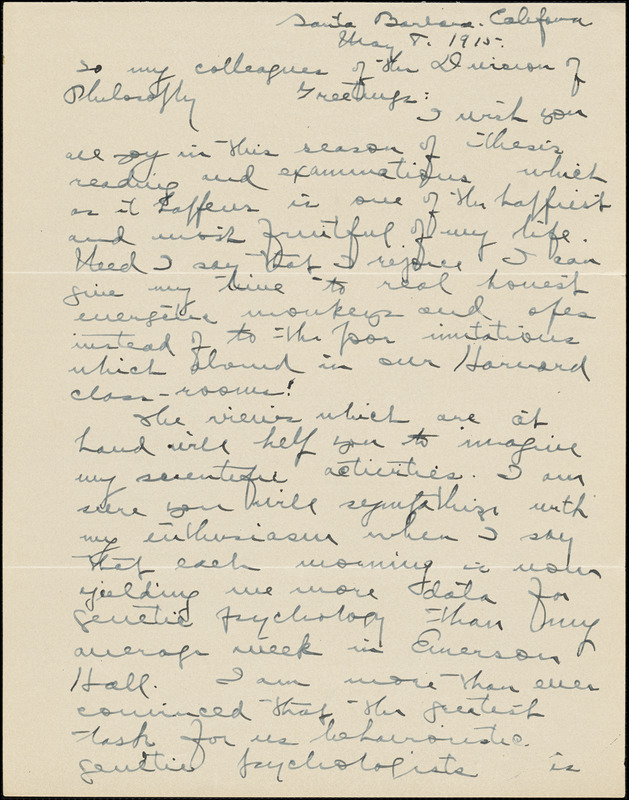 Santa Barbara. California
May 8. 1915.
To my colleagues of the Division of
Philosophy Greetings:
I wish you
all joy in this season of thesis
reading and examinations which
as it happens is one of the happiest
and most fruitful of my life.
Need I say that I rejoice I can
give my time to real honest
energetic monkeys and apes
instead of to the poor imitations
which abound in our Harvard
class-rooms!
The views which are at
hand will help you to imagine
my scientific activities. I am
sure you will sympathize with
my enthusiasm when I say
that each morning is now
yielding me more data for
genetic psychology than my
average week in Emerson
Hall. I am more than ever
convinced that the greatest
task for us behavioristic
genetic psychologists is